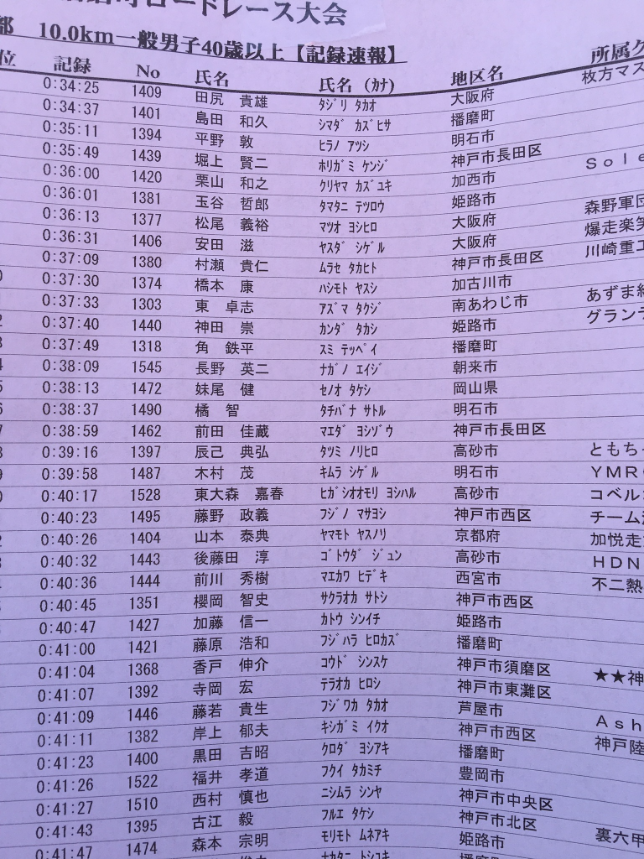 ロードレース大会
部 10.0km一般男子40歳以上【記録速報】
位 記録 No 氏名 氏名(カナ) 地区名 所属
0:34:25 1409 田尻 貴雄 タジリ タカオ 大阪府 枚方マス
0:34:37 1401 島田 和久 シマダ カズヒサ 播磨町
0:35:11 1394 平野 敦 ヒラノ アツシ 明石市
0:35:49 1439 堀上 賢二 ホリガミ ケンジ 神戸市長田区
0:36:00 1420 栗山 和之 クリヤマ カズユキ 加西市 Sole
0:36:01 1381 玉谷 哲郎 タマタニ テツロウ 姫路市
0:36:13 1377 松尾 義裕 マツオ ヨシヒロ 大阪府 森野軍団
0:36:31 1406 安田 滋 ヤスダ シゲル 大阪府 爆走楽笑
0:37:09 1380 村瀬 貴仁 ムラセ タカヒト 神戸市長田区 川崎重工
0:37:30 1374 橋本 康 ハシモト ヤスシ 加古川市
0:37:33 1303 東 卓志 アズマ タクジ 南あわじ市 あずま
0:37:40 1440 神田 崇 カンダ タカシ 姫路市 グラン
0:37:49 1318 角 鉄平 スミ テッペイ 播磨町
0:38:09 1545 長野 英二 ナガノ エイジ 朝来市
0:38:13 1472 妹尾 健 セノオ タケシ 岡山県
0:38:37 1490 橘 智 タチバナ サトル 明石市
0:38:59 1462 前田 佳蔵 マエダ ヨシゾウ 神戸市長田区
0:39:16 1397 辰己 典弘 タツミ ノリヒロ 高砂市 ともち
0:39:58 1487 木村 茂 キムラ シゲル 明石市 YMR
0:40:17 1528 東大森 嘉春 ヒガシオオモリ ヨシハル 高砂市 コベル
0:40:23 1495 藤野 政義 フジノ マサヨシ 神戸市西区 チーム
0:40:26 1404 山本 泰典 ヤマモト ヤスノリ 京都府 加悦走
0:40:32 1443 後藤田 淳 ゴトウダ ジュン 高砂市 HDN
0:40:36 1444 前川 秀樹 マエカワ ヒデキ 西宮市 不二熱
0:40:45 1351 櫻岡 智史 サクラオカ サトシ 神戸市西区
0:40:47 1427 加藤 信一 カトウ シンイチ 姫路市
0:41:00 1421 藤原 浩和 フジハラ ヒロカズ 播磨町
0:41:04 1368 香戸 伸介 コウド シンスケ 神戸市須磨区 ★★神
0:41:07 1392 寺岡 宏 テラオカ ヒロシ 神戸市東灘区
0:41:09 1446 藤若 貴生 フジワカ タカオ 芦屋市 Ash
0:41:11 1382 岸上 郁夫 キシガミ イクオ 神戸市西区 神戸陸
0:41:23 1400 黒田 吉昭 クロダ ヨシアキ 播磨町
0:41:26 1522 福井 孝道 フクイ タカミチ 豊岡市
0:41:27 1510 西村 慎也 ニシムラ シンヤ 神戸市中央区
0:41:43 1395 古江 毅 フルエ タケシ 神戸市北区 裏六甲
0:41:47 1474 森本 宗明 モリモト ムネアキ 姫路市